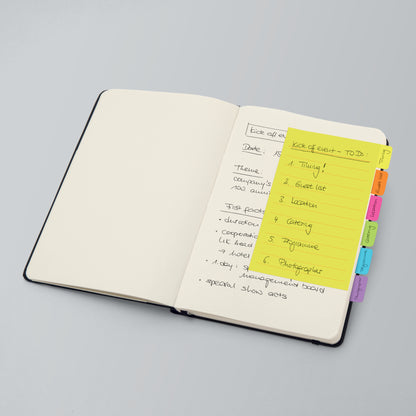 Kick off ev
Date: 15
Theme:
company's
100 anni
First facts
• duration
• cooperatio
UK head
→ hotel
• 1 day : s
management board
• special show acts
Kick off event - TO Do:
1. Timing!
2. Guest list
3. Location
4. Catering
5. Programme
6. Photographer